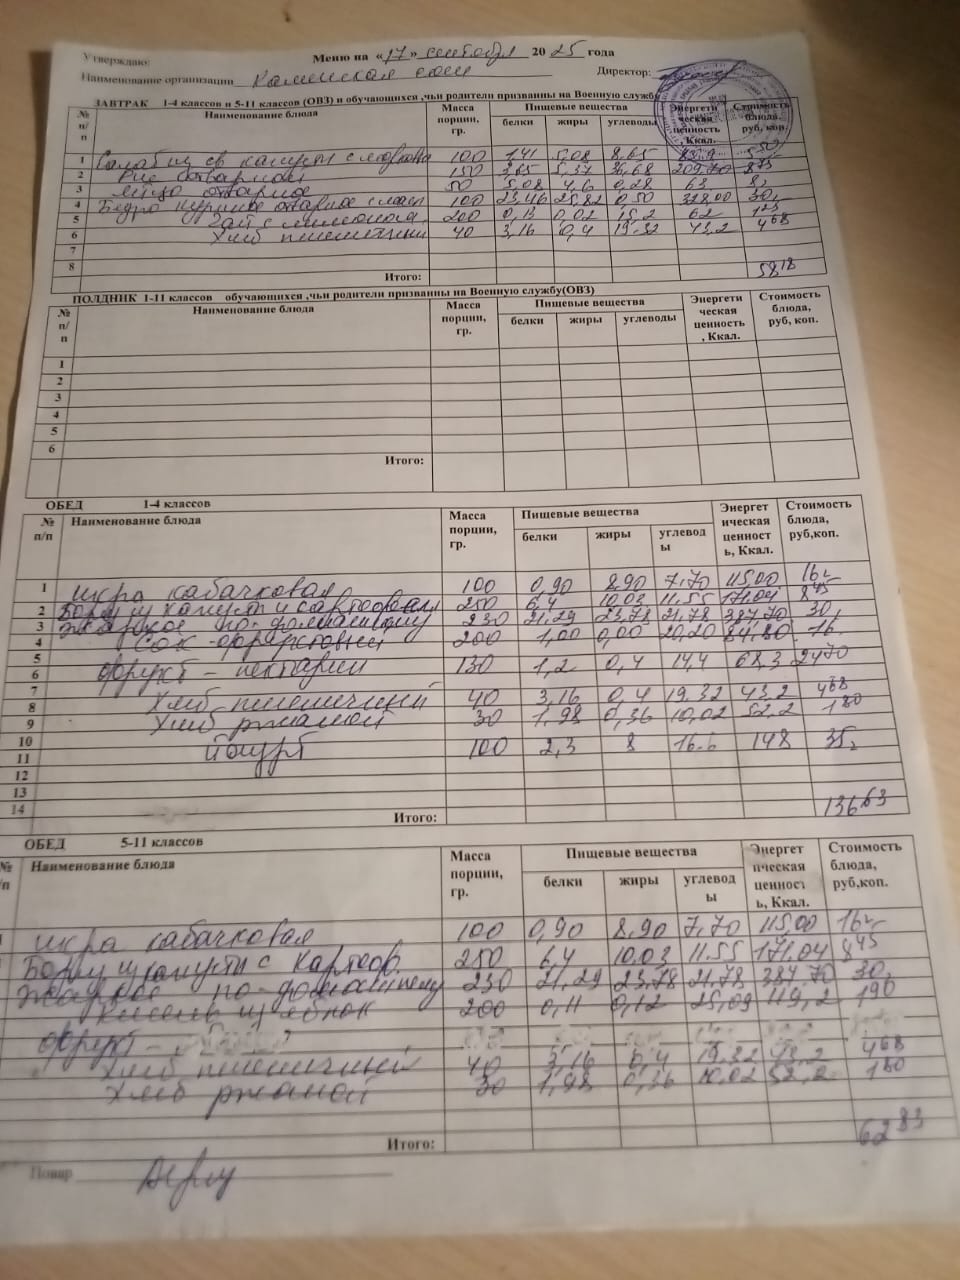 Утверждаю: Меню на «17» сентября 2025 года
Наименование организации Каменская сош Директор:
ЗАВТРАК 1-4 классов и 5-11 классов (ОВЗ) и обучающихся ,чьи родители призванны на Военную службу
№ п/п Наименование блюда Масса порции, гр. Пищевые вещества Энергетическая ценность, Ккал. Стоимость блюда, руб, коп.
белки жиры углеводы
1 Салат из св капусты с морковь 100 1,41 5,08 8,65 550
2 Рис отварной 150 3,65 5,37 36,68 209,70 875
3 Яйцо отварное 50 5,08 4,6 0,28 63 8,
4 Бедро куриное отварное с масл 100 23,46 25,82 0,50 328,00 30,
5 Чай с лимоном 200 0,13 0,02 15,2 62
6 Хлеб пшеничный 40 3,16 0,4 19.32 43,2 468
7
8
Итого: 5818
ПОЛДНИК 1-11 классов обучающихся ,чьи родители призванны на Военную службу(ОВЗ)
№ п/п Наименование блюда Масса порции, гр. Пищевые вещества Энергетическая ценность, Ккал. Стоимость блюда, руб, коп.
белки жиры углеводы
1
2
3
4
5
6
Итого:
ОБЕД 1-4 классов
№ п/п Наименование блюда Масса порции, гр. Пищевые вещества Энергетическая ценность, Ккал. Стоимость блюда, руб,коп.
белки жиры углеводы
1 икра кабачковая 100 0,90 8,90 7,70 115,00 16
2 Борщ из капусты и картофеля 250 6,4 10,03 11.55 171,04 845
3 Жаркое по-домашнему 230 21,29 23,78 21,78 387,70 30,
4 Сок фруктовый 200 1,00 0,00 20,20 84,80 16
5
6 фрукт - нектарин 130 1,2 0,4 14,4 68,3 2470
7
8 Хлеб пшеничный 40 3,16 0,4 19.32 43,2 468
9 Хлеб ржаной 30 1,98 0,36 10,02 52,2 180
10
11 йогурт 100 2,3 8 16.6 148 35,
12
13
14
Итого: 13663
ОБЕД 5-11 классов
№ п/п Наименование блюда Масса порции, гр. Пищевые вещества Энергетическая ценность, Ккал. Стоимость блюда, руб,коп.
белки жиры углеводы
икра кабачковая 100 0,90 8,90 7,70 115,00 16
Борщ из капусты с картоф. 250 6,4 10,03 11.55 171,04 845
Жаркое по-домашнему 230 21,29 23,78 21,78 387,70 30,
Кисель из яблок 200 0,11 0,12 25,09 119,2 190
фрукт -
Хлеб пшеничный 40 3,16 0,4 19.32 43,2 468
Хлеб ржаной 30 1,98 0,36 10.02 52,2 180
Итого: 6283
Повар